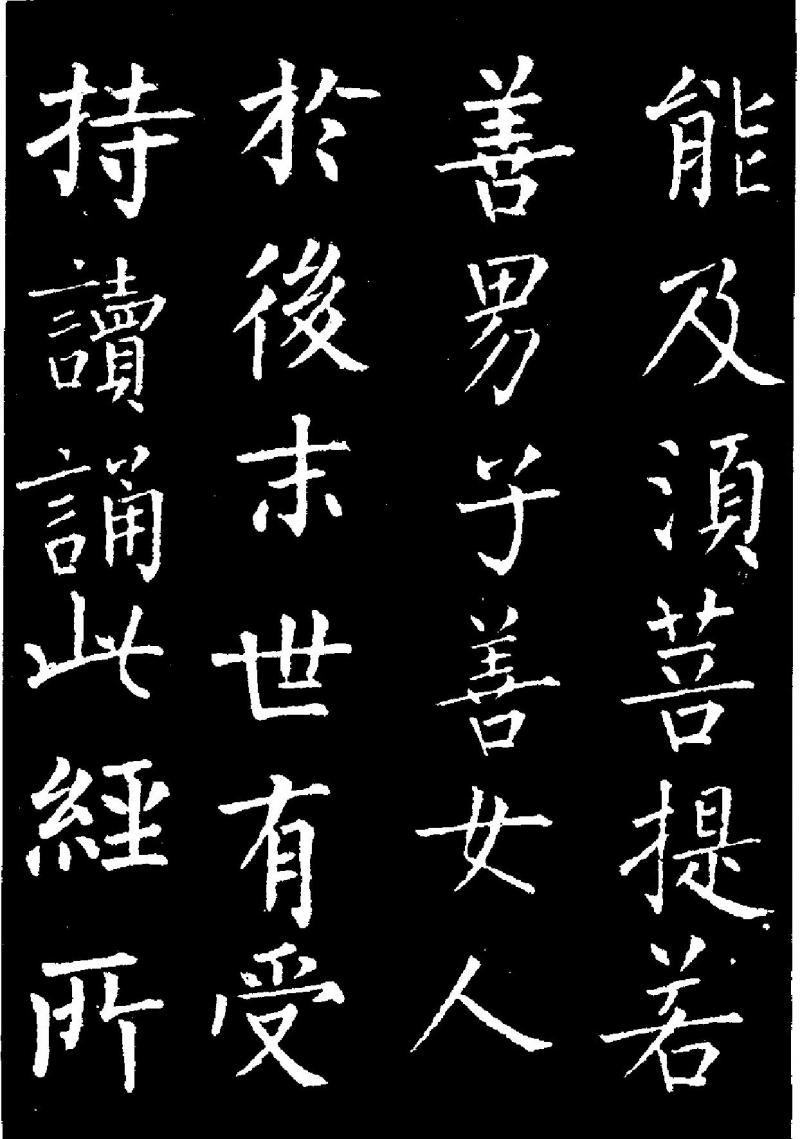 能及湏菩提若
善男子善女人
於後末世有受
持讀誦此經所